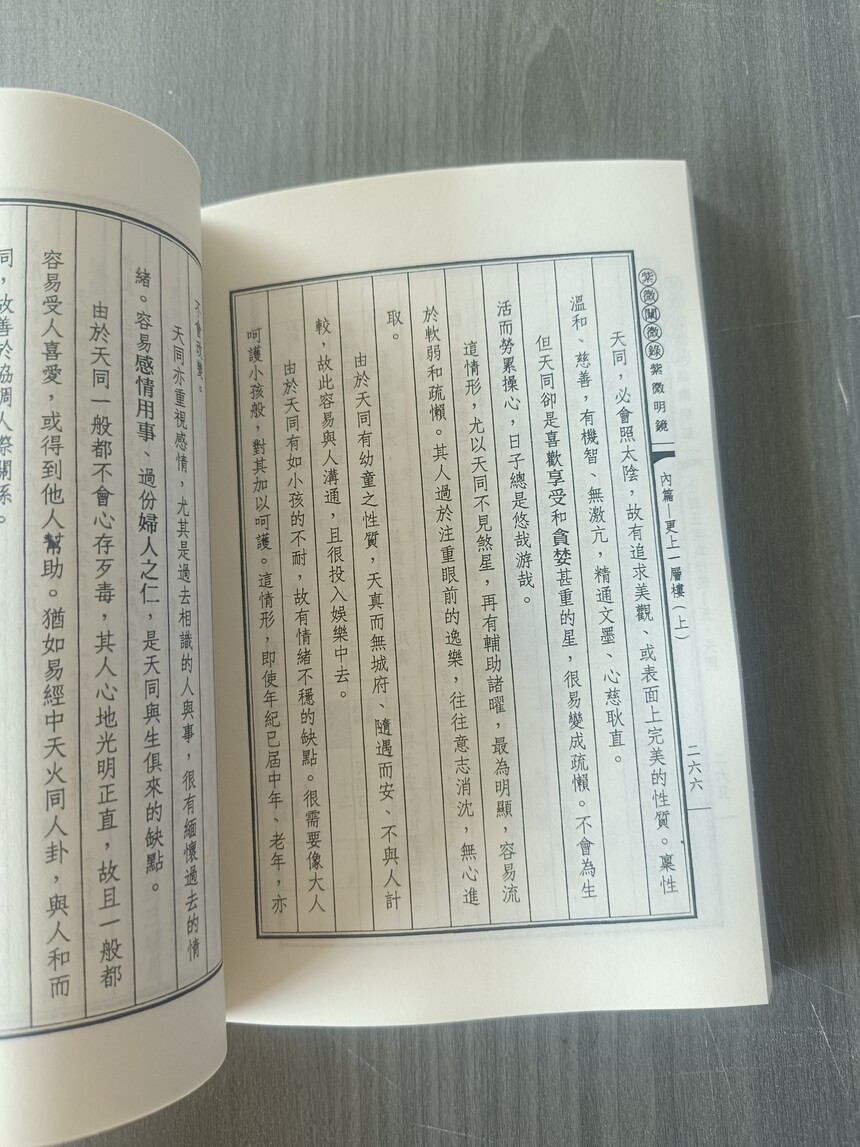 紫微闡微錄 紫微明鏡
內篇—更上一層樓(上)
二六六
天同，必會照太陰，故有追求美觀、或表面上完美的性質。稟性
溫和、慈善，有機智、無激亢，精通文墨、心慈耿直。
但天同卻是喜歡享受和貪婪甚重的星，很易變成疏懶。不會為生
活而勞累操心，日子總是悠哉游哉。
這情形，尤以天同不見煞星，再有輔助諸曜，最為明顯，容易流
於軟弱和疏懶。其人過於注重眼前的逸樂，往往意志消沈，無心進
取。
由於天同有幼童之性質，天真而無城府、隨遇而安、不與人計
較，故此容易與人溝通，且很投入娛樂中去。
由於天同有如小孩的不耐，故有情緒不穩的缺點。很需要像大人
呵護小孩般，對其加以呵護。這情形，即使年紀已屆中年、老年，亦
天同亦重視感情，尤其是過去相識的人與事，很有緬懷過去的情
緒。容易感情用事、過份婦人之仁，是天同與生俱來的缺點。
由於天同一般都不會心存歹毒，其人心地光明正直，故且一般都
容易受人喜愛，或得到他人幫助。猶如易經中天火同人卦，與人和而
同，故善於協調人際關係。